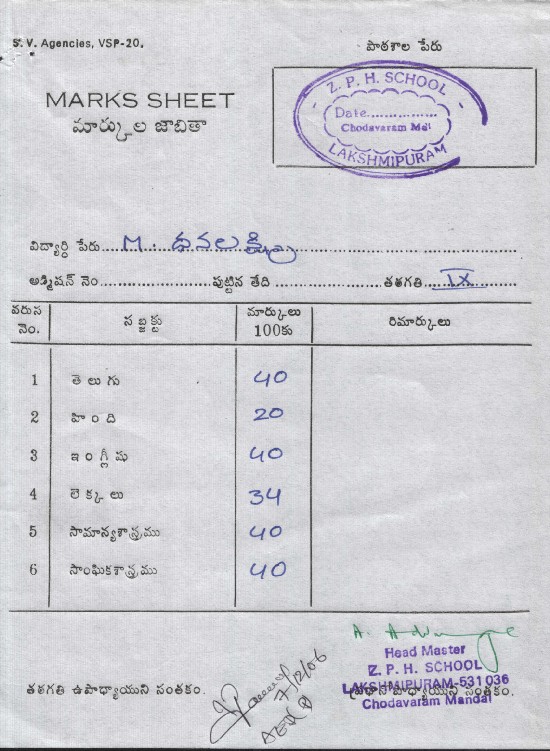 S. V. Agencies, VSP-20.
పాఠశాల పేరు
MARKS SHEET
మార్కుల జాబితా
Z. P. H. SCHOOL
Date...............
Chodavaram Mdl
LAKSHMIPURAM
విద్యార్ధి పేరు M. ధనలక్ష్మి
అడ్మిషన్ నెం. పుట్టిన తేది తరగతి IX
వరుస నెం. సబ్జక్టు మార్కులు 100కు రిమార్కులు
1 తెలుగు 40
2 హింది 20
3 ఇంగ్లీషు 40
4 లెక్కలు 34
5 సామాన్యశాస్త్రము 40
6 సాంఘికశాస్త్రము 40
Head Master
Z. P. H. SCHOOL
LAKSHMIPURAM-531 036
Chodavaram Mandal
7/12/06
తరగతి ఉపాధ్యాయుని సంతకం.
ప్రధానోపాధ్యాయుని సంతకం.